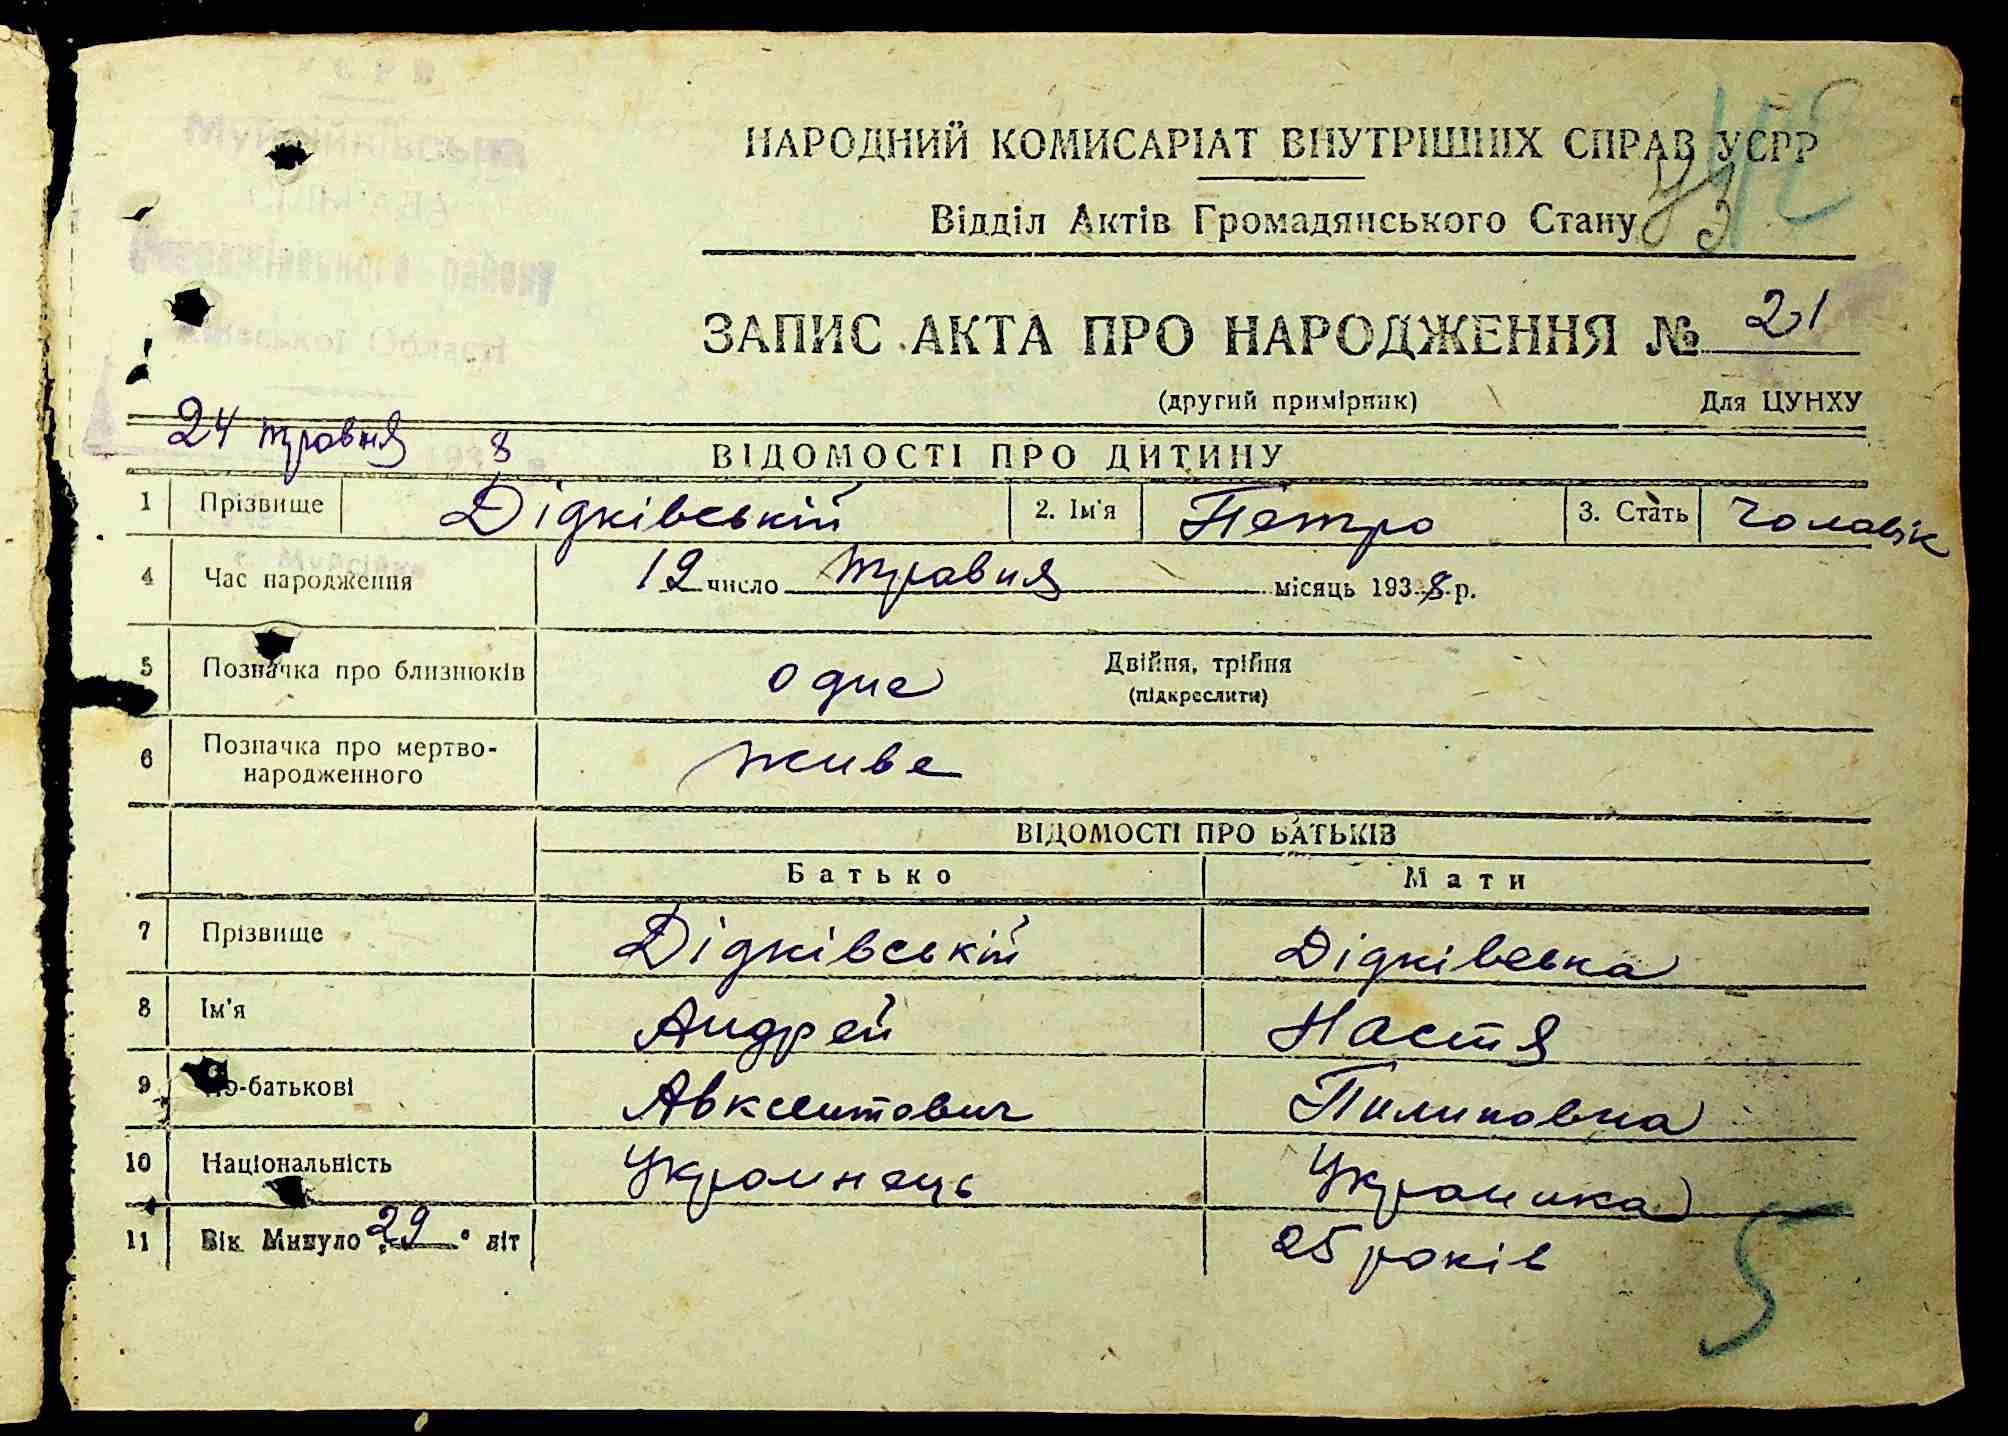 НАРОДНИЙ КОМИСАРІАТ ВНУТРІШНІХ СПРАВ УСРР
Відділ Актів Громадянського Стану
ЗАПИС АКТА ПРО НАРОДЖЕННЯ № 21
(другий примірник) Для ЦУНХУ
Області
24 травня 1938
ВІДОМОСТІ ПРО ДИТИНУ
1 Прізвище Дідківській 2. Ім'я Петро 3. Стать Чоловік
с. Муйсійка
4 Час народження 12 число травня місяць 1938 р.
5 Позначка про близнюків одне Двійня, трійня
(підкреслити)
6 Позначка про мертво-
народженного живе
ВІДОМОСТІ ПРО БАТЬКІВ
Батько Мати
7 Прізвище Дідківській Дідківська
8 Ім'я Андрей Настя
9 По-батькові Авксентович Пилиповна
10 Національність Украінець Украинка
11 Вік Минуло „29" літ 25 років
5